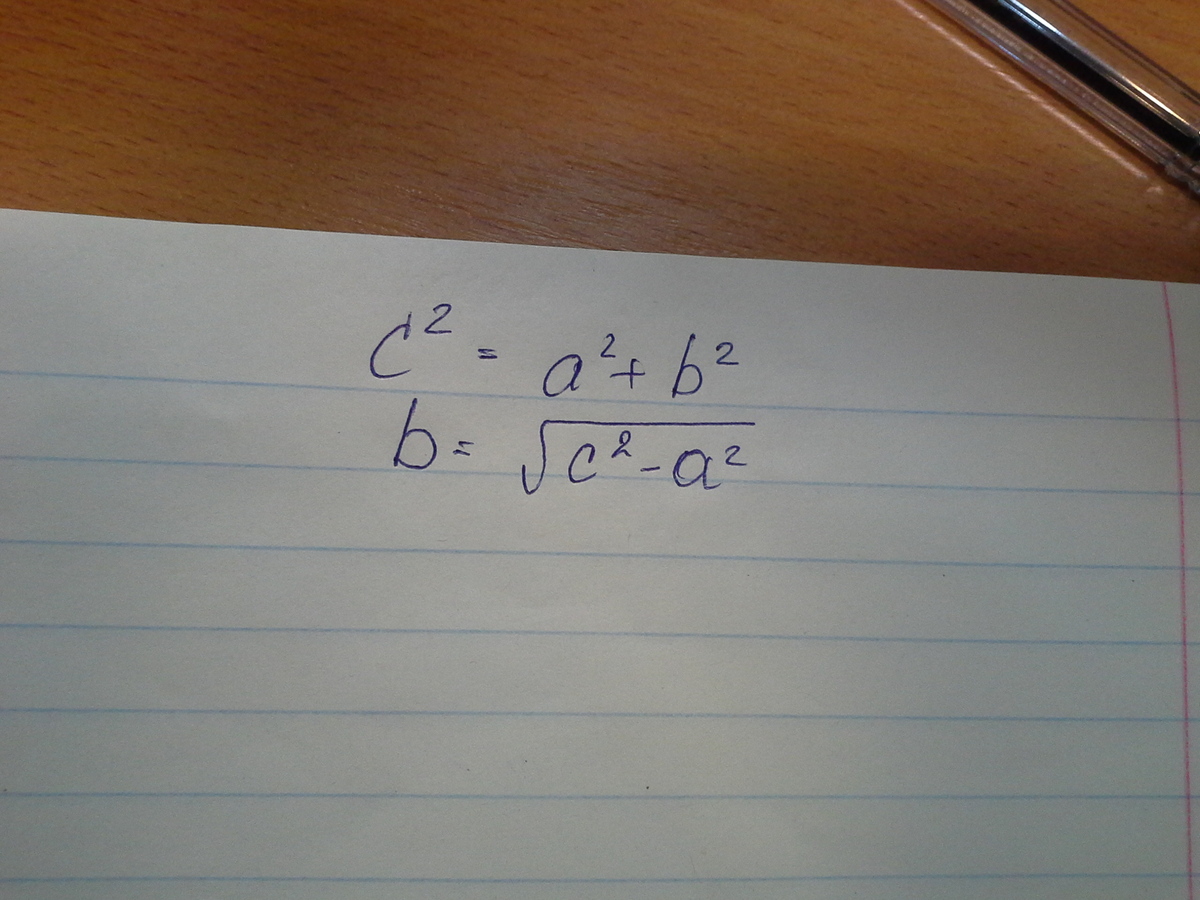 c² = a² + b²
b = √(c² - a²)